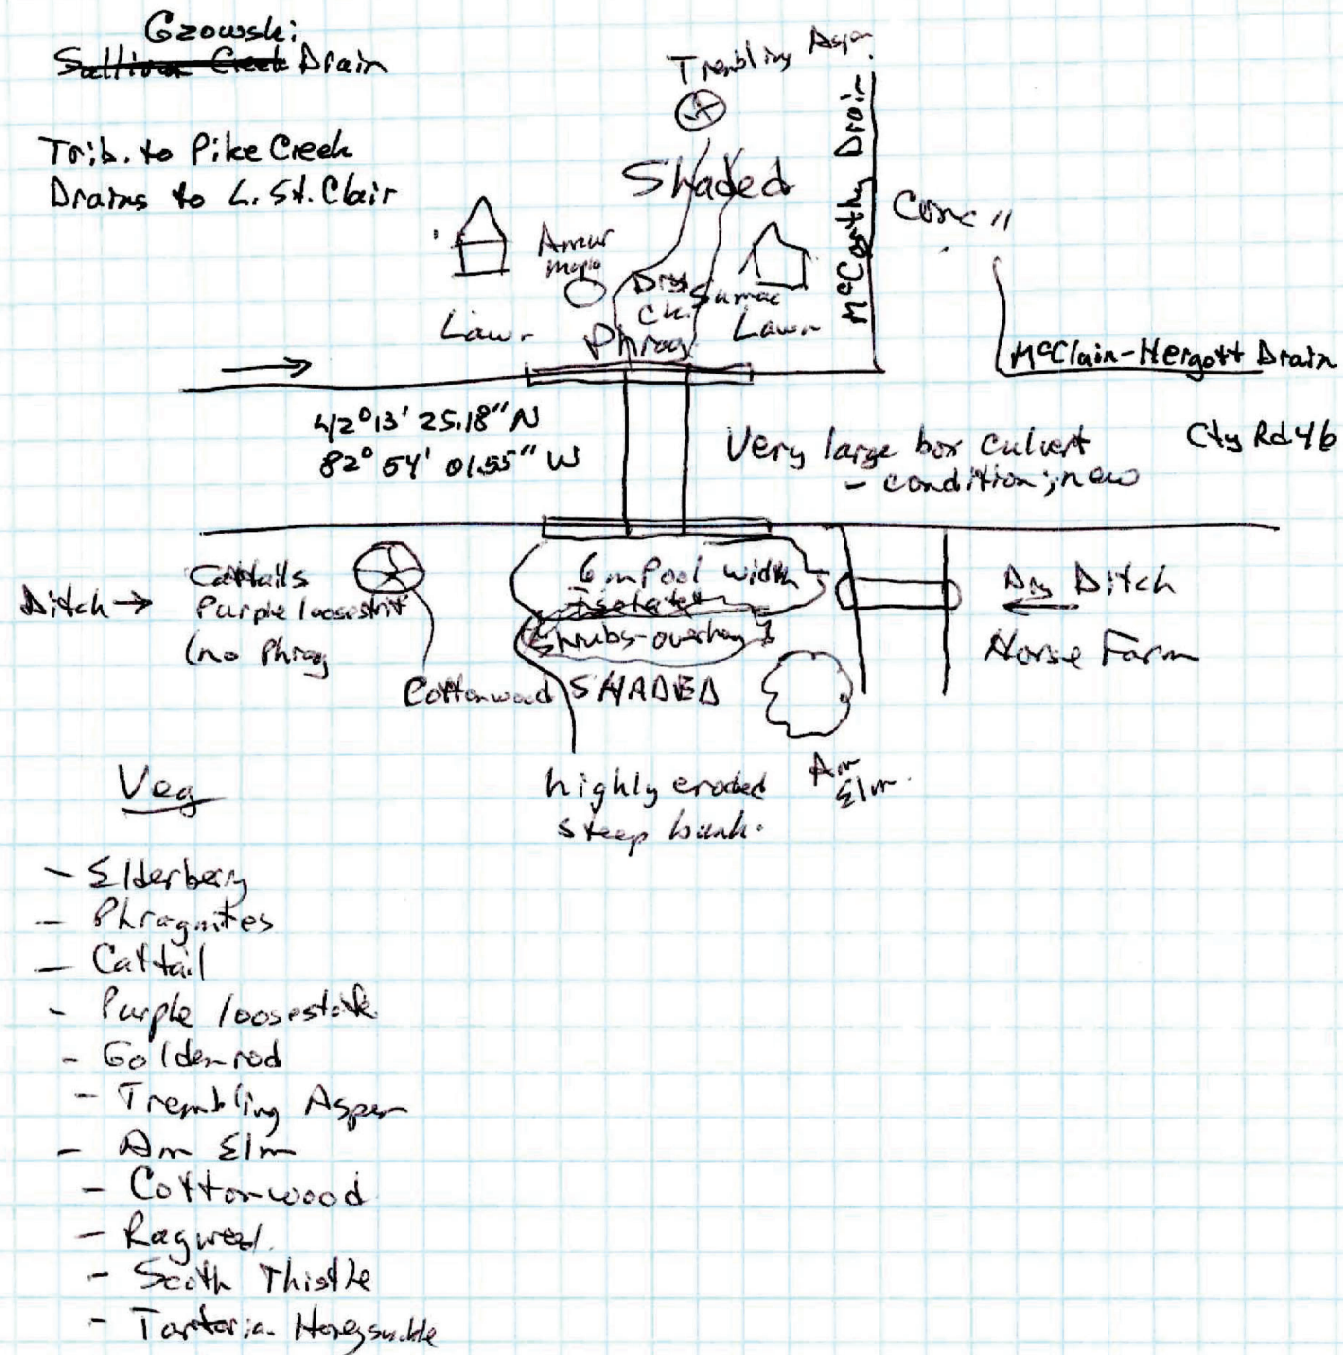 Gzowski
Sullivan Creek Drain
Trib. to Pike Creek
Drains to L. St. Clair
Trembling Aspen
Shaded
McCarthy Drain
Conc 11
Amur
maple
Dry
Ck.
Sumac
Lawn
Phrag
Lawn
McClain-Hergott Drain
42°13' 25.18" N
82° 54' 01.55" W
Very large box culvert
- condition; new
Cty Rd 46
Ditch →
Cattails
Purple loosestrif
(no Phrag
6 m Pool width
Isolated
Shrubs-overhang
SHADED
Cottonwood
Dry Ditch
Horse Farm
Am
Elm
highly eroded
steep bank.
Veg
- Elderberry
- Phragmites
- Cattail
- Purple loosestrife
- Goldenrod
- Trembling Aspen
- Am Elm
- Cottonwood
- Ragweed
- Scoth Thistle
- Tartarian Honeysuckle